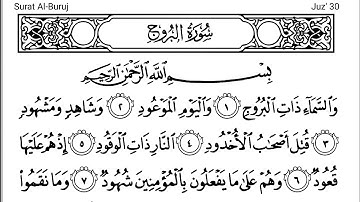 Surat Al-Buruj Juz' 30
سُورَةُ الْبُرُوجِ
بِسْمِ اللَّهِ الرَّحْمَٰنِ الرَّحِيمِ
وَالسَّمَاءِ ذَاتِ الْبُرُوجِ ١ وَالْيَوْمِ الْمَوْعُودِ ٢ وَشَاهِدٍ وَمَشْهُودٍ
٣ قُتِلَ أَصْحَابُ الْأُخْدُودِ ٤ النَّارِ ذَاتِ الْوَقُودِ ٥ إِذْ هُمْ عَلَيْهَا
قُعُودٌ ٦ وَهُمْ عَلَىٰ مَا يَفْعَلُونَ بِالْمُؤْمِنِينَ شُهُودٌ ٧ وَمَا نَقَمُوا